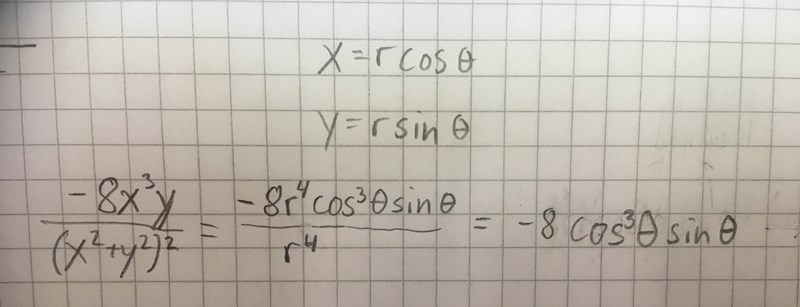 x = r cos θ
y = r sin θ
-8x³y / (x²+y²)² = -8r⁴cos³θ sin θ / r⁴ = -8 cos³θ sin θ